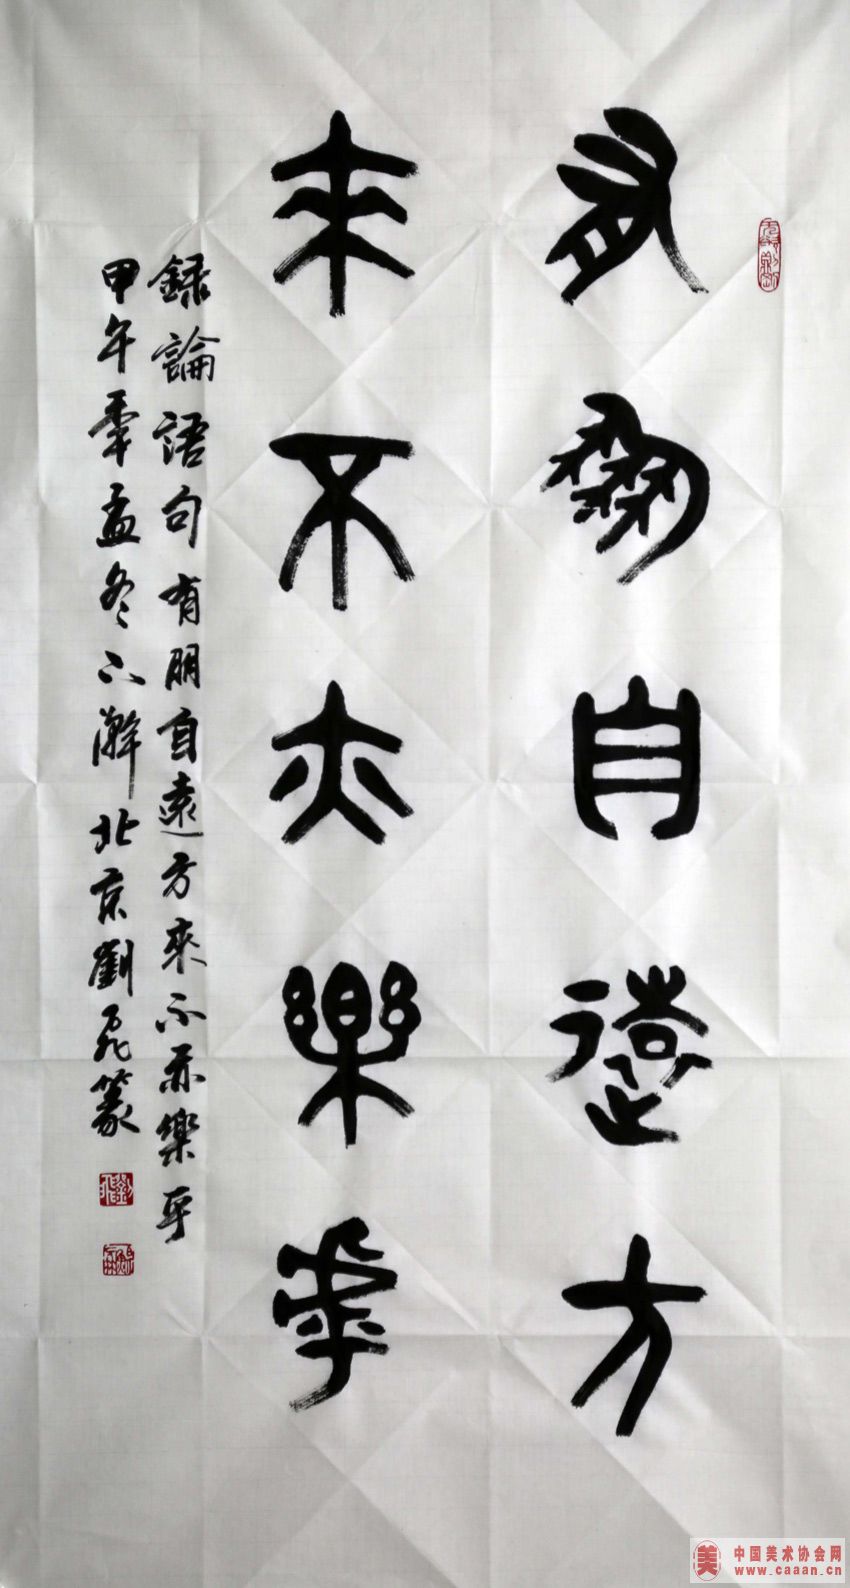 有朋自遠方
來不亦樂乎
錄論語句有朋自遠方來不亦樂乎
甲午年孟冬於瀚北京劉飛篆
中国美术协会网
www.caaan.cn